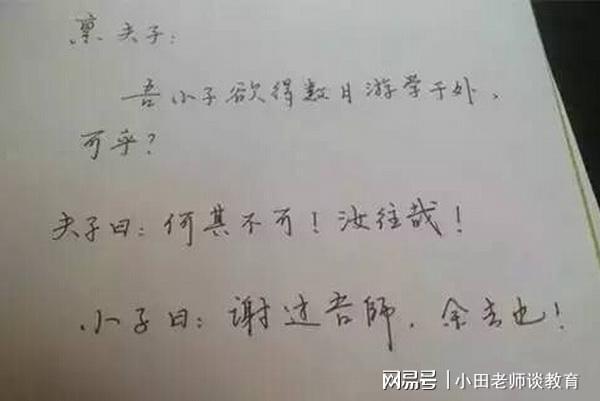 禀夫子:
吾小子欲得数日游学于外,
可乎?
夫子曰:何其不可!汝往哉!
小子曰:谢过吾師,余去也!
网易号 | 小田老师谈教育